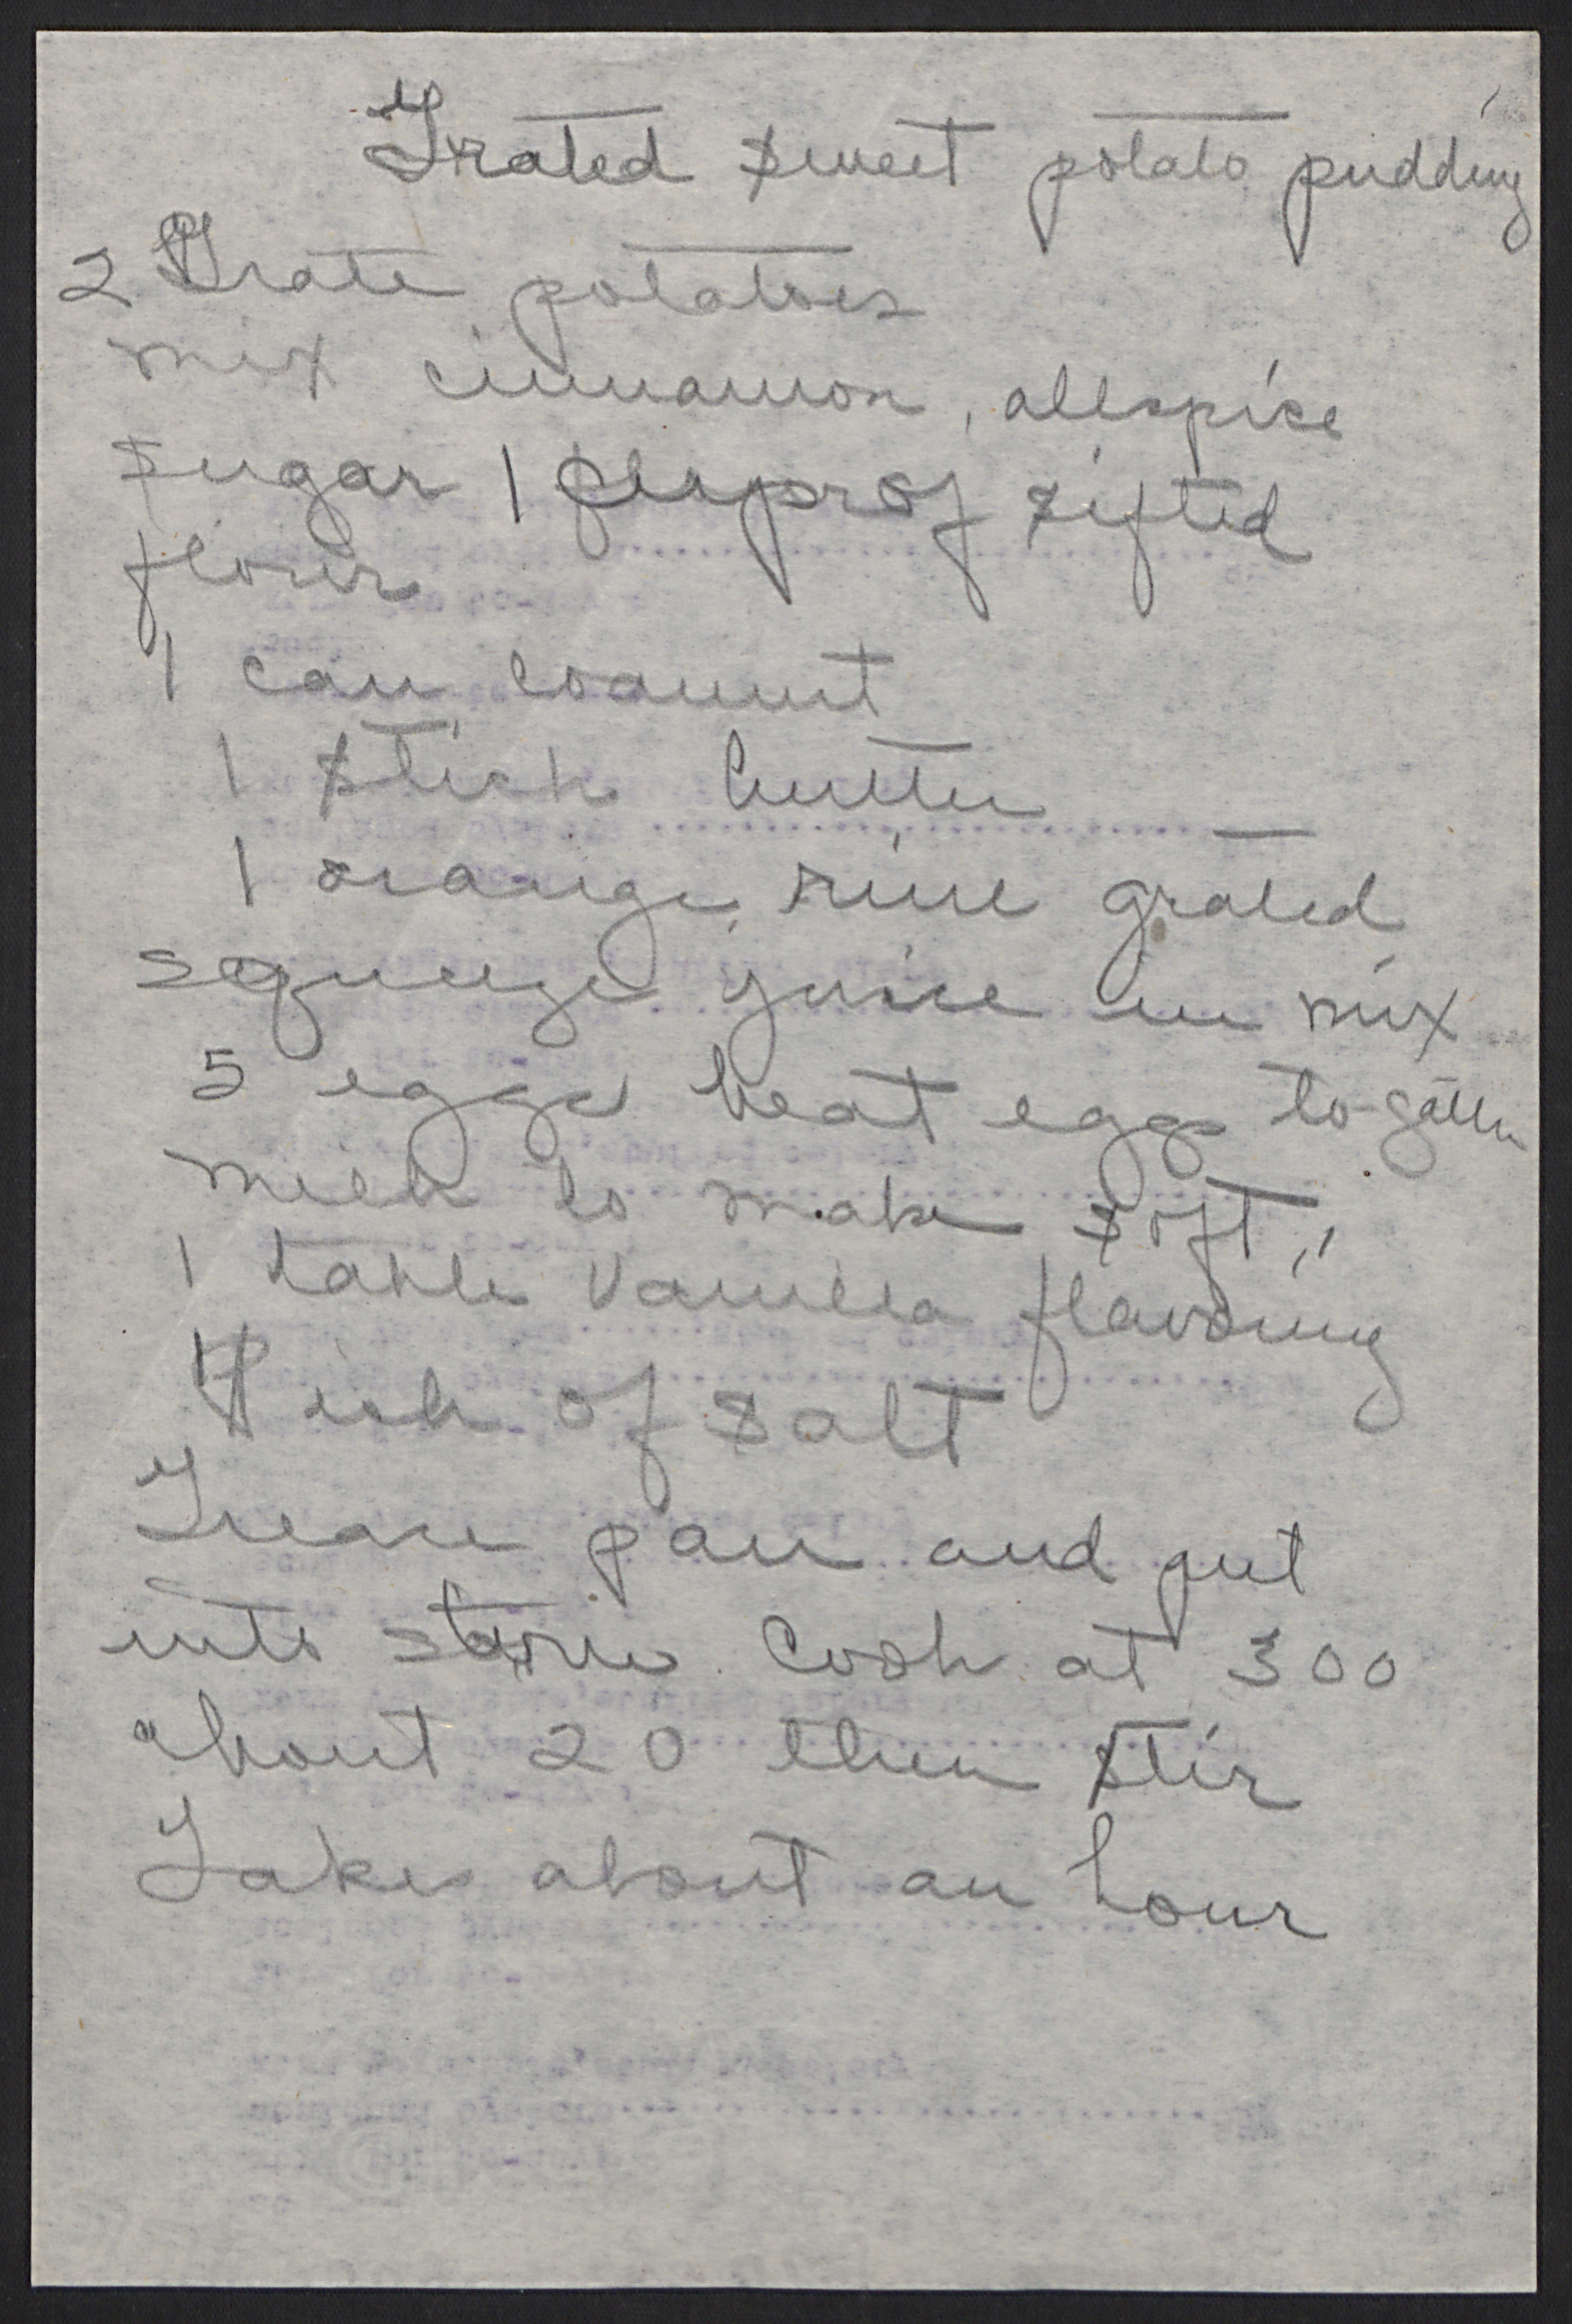 Grated sweet potato pudding
2 Grate potatoes
mix cinnamon, allspice
sugar 1 of sifted
flour
1 can coannut
1 stick butter
1 orange, rine grated
squeeze juice in mix
5 eggs beat eggs to-gather
milk to make soft,
1 table vanilla flavoring
1 Pich of salt
Grease pan and put
into stove. Cook at 300
about 20 then stir
Takes about an hour